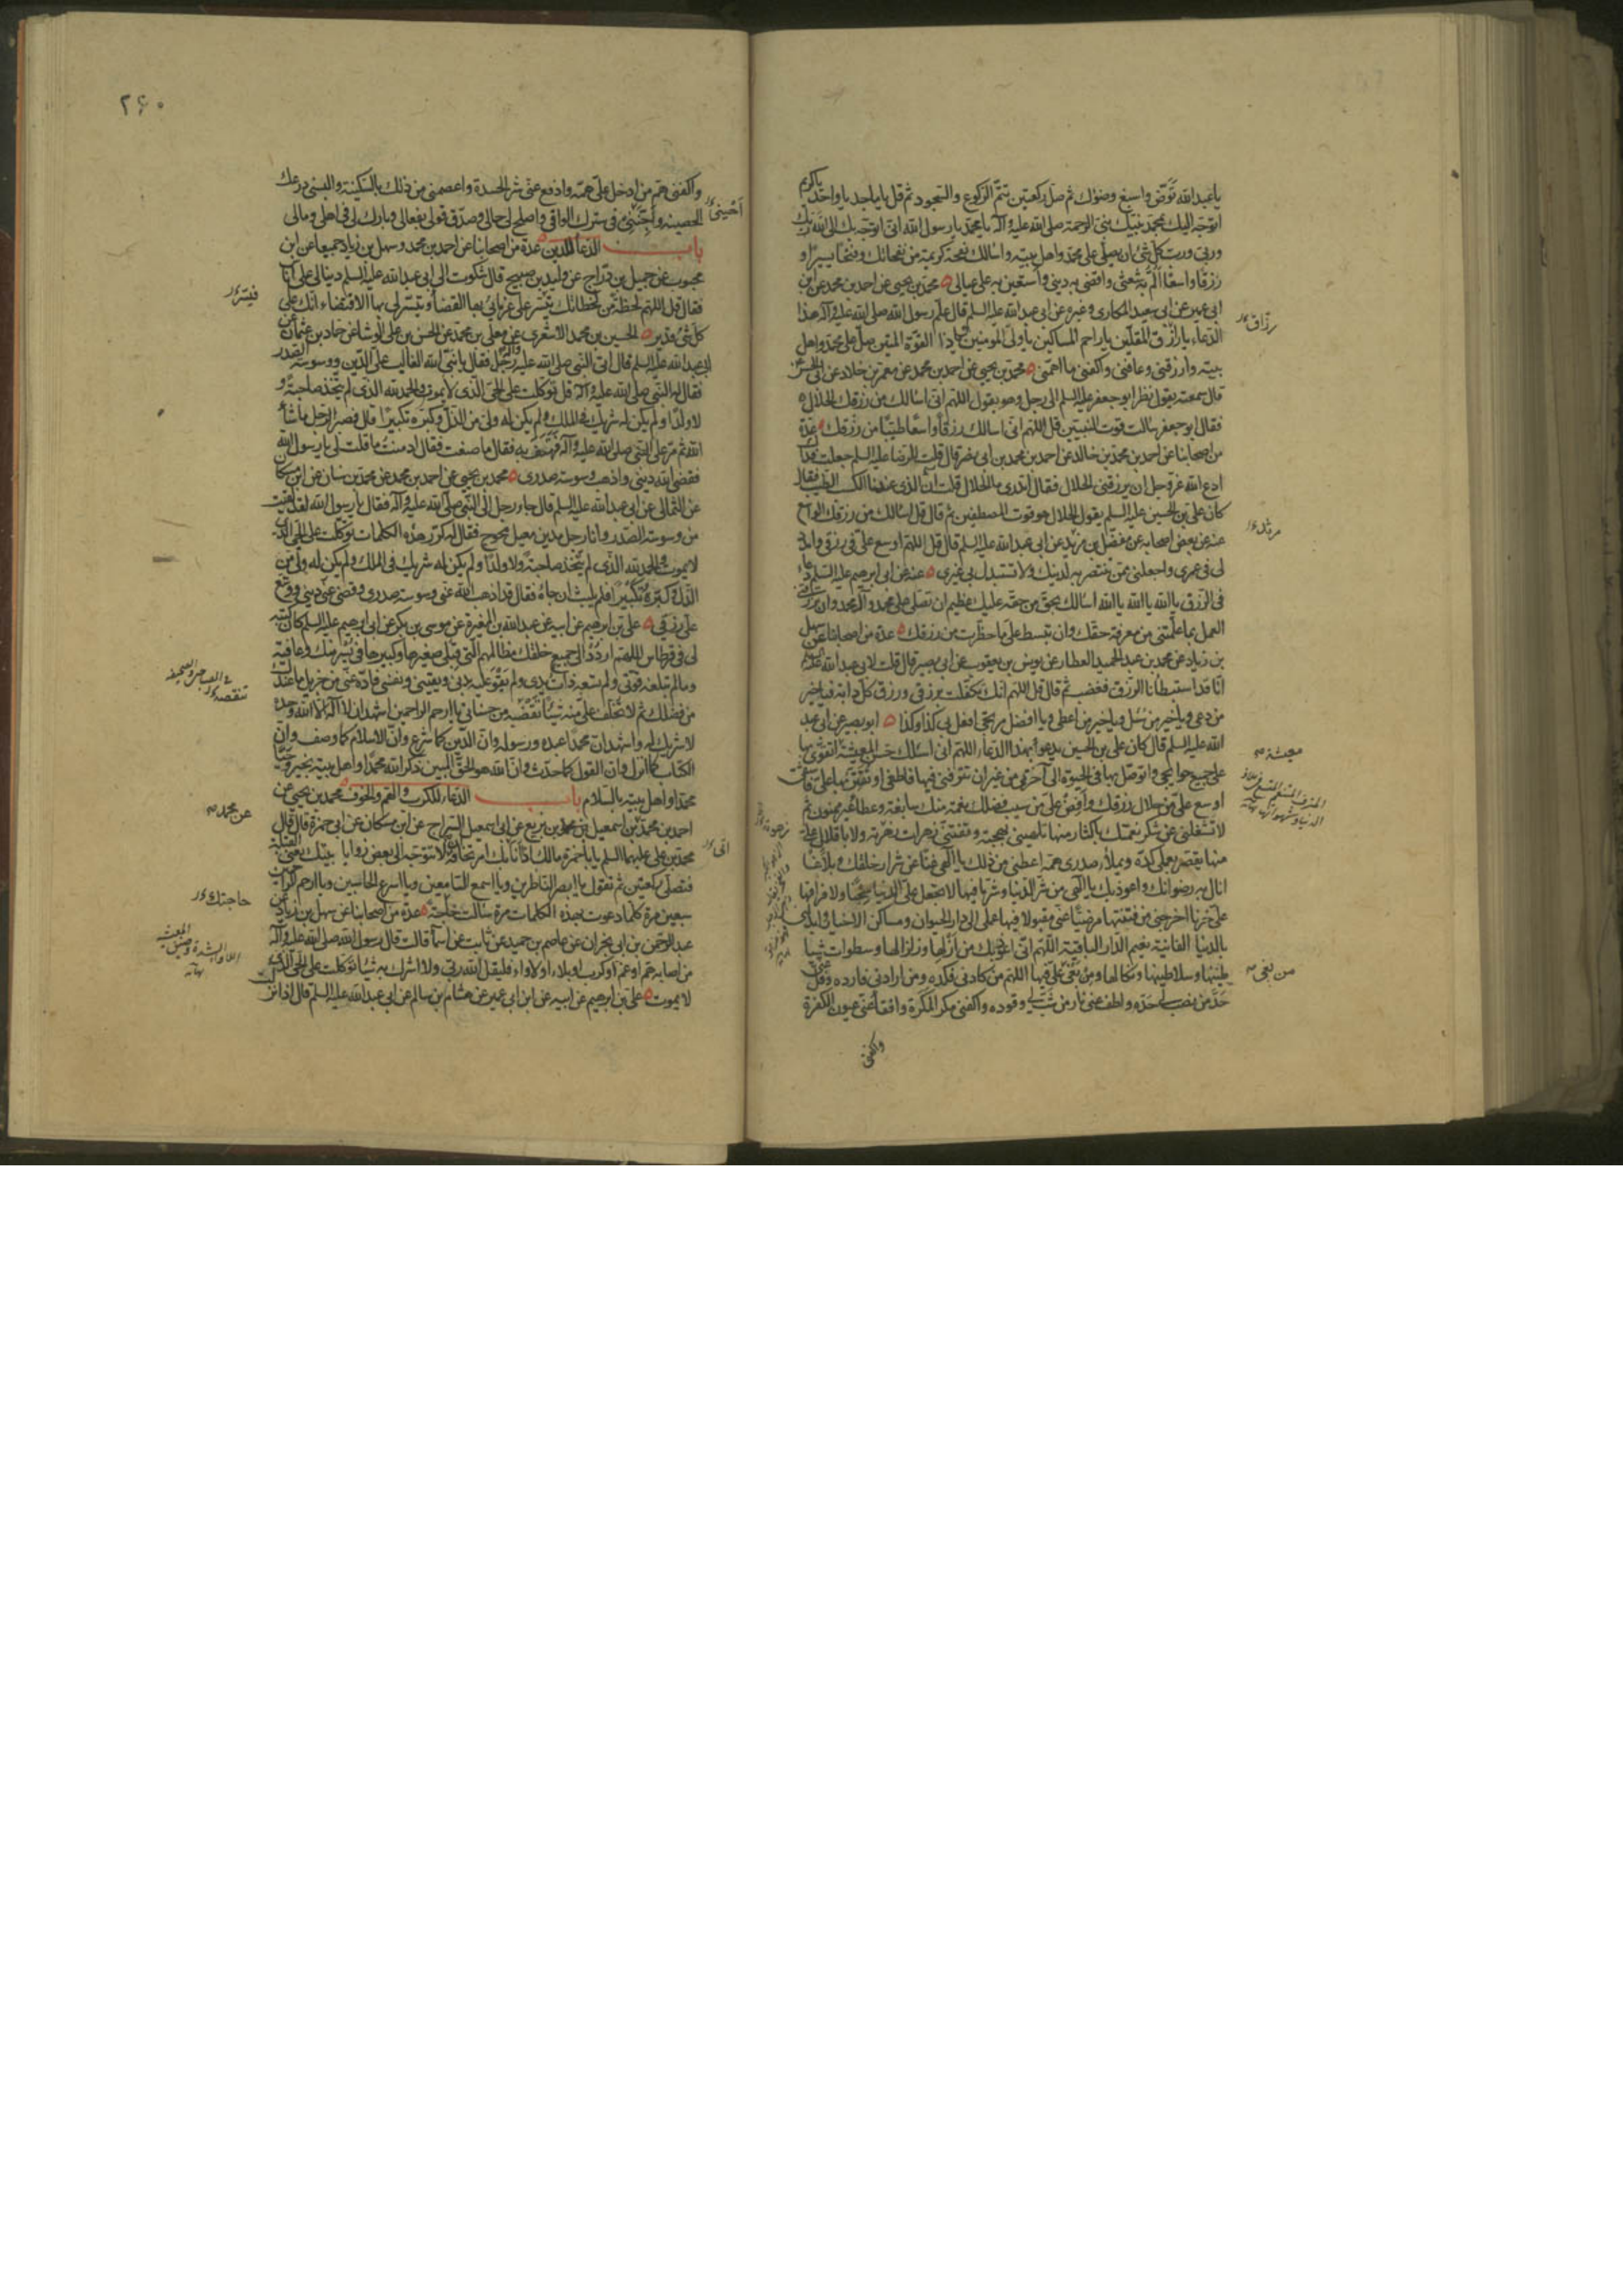 يا عبد الله توضّ واسبغ وضوئك ثم صل ركعتين تتم الركوع والسجود ثم قل يا ماجد يا واحد يا كريم
اتوجه اليك بمحمد نبيك نبي الرحمة صلى الله عليه وآله يا محمد يا رسول الله اني اتوجه بك الى الله ربك
وربي ورب كل شئ ان يصلي على محمد واهل بيته واسالك نفحة كريمة من نفحاتك وفتحا يسيرا و
رزقا واسعا الم به شعثي واقضي به ديني واستعين به على عيالي محمد بن يحيى عن احمد بن محمد عن ابن
ابي عمير عن ابي سعيد المكاري وغيره عن ابي عبد الله عليه السلم قال علم رسول الله صلى الله عليه وآله هذا
الدعاء يا رازق المقلين يا راحم المساكين يا ولي المؤمنين يا ذا القوة المتين صل على محمد واهل
بيته وارزقني وعافني واكفني ما اهمني محمد بن يحيى عن احمد بن محمد عن معمر بن خلاد عن ابي الحسن
قال سمعته يقول نظر ابو جعفر عليه السلم الى رجل وهو يقول اللهم اني اسالك من رزقك الحلال
فقال ابو جعفر سالت قوت النبيين قل اللهم اني اسالك رزقا واسعا طيبا من رزقك عدة
من اصحابنا عن احمد بن محمد بن خالد عن احمد بن محمد بن ابي نصر قال قلت للرضا عليه السلم جعلت فداك
ادع الله عز وجل ان يرزقني الحلال فقال اتدري ما الحلال قلت ان الذي عندنا الكسب الطيب فقال
كان علي بن الحسين عليه السلم يقول الحلال هو قوت المصطفين ثم قال قل اسالك من رزقك الواسع
عنه عن بعض اصحابه عن مفضل بن مزيد عن ابي عبد الله عليه السلم قال قل اللهم اوسع علي في رزقي وامدد
لي في عمري واجعلني ممن تنتصر به لدينك ولا تستبدل بي غيري عنه عن ابي ابرهيم عليه السلم دعاء
في الرزق يا الله يا الله يا الله اسالك بحق من حقه عليك عظيم ان تصلي على محمد وآل محمد وان ترزقني
العمل بما علمتني من معرفة حقك وان تبسط علي ما حظرت من رزقك عدة من اصحابنا عن سهل
بن زياد عن محمد بن عبد الحميد العطار عن يونس بن يعقوب عن ابي بصير قال قلت لابي عبد الله عليه السلم
انا قد استبطأنا الرزق فغضب ثم قال قل اللهم انك تكفلت برزقي ورزق كل دابة فيا خير
من دعي ويا خير من سئل ويا خير من اعطى ويا افضل مرتجى افعل بي كذا وكذا ابو بصير عن ابي عبد
الله عليه السلم قال كان علي بن الحسين يدعو بهذا الدعاء اللهم اني اسئلك حسن المعيشة اتقوى بها
على جميع حوايجي واتوصل بها في الحيوة الى آخرتي من غير ان تترفني فيها فاطغى او تقتر بها علي فاشقى
اوسع علي من حلال رزقك وافض علي من سيب فضلك نعمة منك سابغة وعطاء غير ممنون ثم
لا تشغلني عن شكر نعمتك باكثار منها تلهيني بهجته وتفتني زهرات زهرته ولا باقلال علي
منها يقصر بعملي كده ويملأ صدري همه اعطني من ذلك يا الهي غنا عن شرار خلقك وبلاغا
انال به رضوانك واعوذ بك يا الهي من شر الدنيا وشر ما فيها لا تجعل علي الدنيا سجنا ولا فراقها
علي حزنا اخرجني من فتنتها مرضيا عني مقبولا فيها عملي الى دار الحيوان ومساكن الاخيار وابدلني
بالدنيا الفانية نعيم الدار الباقية اللهم اني اعوذ بك من ازلها وزلزالها وسطوات شيا
طينها وسلاطينها ونكالها ومن بغي علي فيها اللهم من كادني فكده ومن ارادني فارده وفل عني
حد من نصب لي حده واطف عني نار من شب لي وقوده واكفني مكر المكرة وافقأ عني عيون الكفرة
واكفني
رزاق
مزيد
معيشة
من بغى
٢۶٠
واكفني هم من ادخل علي همه وادفع عني شر الحسدة واعصمني من ذلك بالسكينة والبسني درعك
الحصينة واجنني في سترك الواقي واصلح لي حالي وصدق قولي بفعالي وبارك لي في اهلي ومالي
باب الدعاء للدين عدة من اصحابنا عن احمد بن محمد وسهل بن زياد جميعا عن ابن
محبوب عن جميل بن دراج عن وليد بن صبيح قال شكوت الى ابي عبد الله عليه السلم دينا لي على اناس
فقال قل اللهم لحظة من لحظاتك تيسر على غرمائي بها القضاء وتيسر لي بها الاقتضاء انك على
كل شئ قدير الحسين بن محمد الاشعري عن معلى بن محمد عن الحسن بن علي الوشا عن حماد بن عثمان عن
ابي عبد الله عليه السلم قال اتى النبي صلى الله عليه وآله رجل فقال يا نبي الله الغالب علي الدين ووسوسة الصدر
فقال له النبي صلى الله عليه وآله قل توكلت على الحي الذي لا يموت والحمد لله الذي لم يتخذ صاحبة و
لا ولدا ولم يكن له شريك في الملك ولم يكن له ولي من الذل وكبره تكبيرا قال فصبر الرجل ما شاء
الله ثم مر على النبي صلى الله عليه وآله فهتف به فقال ما صنعت فقال ادمنت ما قلت لي يا رسول الله
فقضى الله ديني واذهب وسوسة صدري محمد بن يحيى عن احمد بن محمد عن محمد بن سنان عن ابن مسكان
عن الثمالي عن ابي عبد الله عليه السلم قال جاء رجل الى النبي صلى الله عليه وآله فقال يا رسول الله لقد لقيت
من وسوسة الصدر وانا رجل مدين معيل محوج فقال له كرر هذه الكلمات توكلت على الحي الذي
لا يموت والحمد لله الذي لم يتخذ صاحبة ولا ولدا ولم يكن له شريك في الملك ولم يكن له ولي من
الذل وكبره تكبيرا فلم يلبث ان جاءه فقال قد اذهب الله عني وسوسة صدري وقضى عني ديني ووسع
علي رزقي علي بن ابرهيم عن ابيه عن عبد الله بن المغيرة عن موسى بن بكر عن ابي ابرهيم عليه السلم كان كتبه
لي في قرطاس اللهم اردد الى جميع خلقك مظالمهم التي قبلي صغيرها وكبيرها في يسر منك وعافية
وما لم تبلغه قوتي ولم تسعه ذات يدي ولم يقو عليه بدني ويقيني ونفسي فاده عني من جزيل ما عندك
من فضلك ثم لا تخلف علي منه شيئا تقضه من حسناتي يا ارحم الراحمين اشهد ان لا اله الا الله وحده
لا شريك له واشهد ان محمدا عبده ورسوله وان الدين كما شرع وان الاسلام كما وصف وان
الكتاب كما انزل وان القول كما حدث وان الله هو الحق المبين ذكر الله محمدا واهل بيته بخير وحيا
محمدا واهل بيته بالسلام باب الدعاء للكرب والهم والخوف محمد بن يحيى عن
احمد بن محمد بن اسمعيل بن بزيع عن ابي اسمعيل السراج عن ابن مسكان عن ابي حمزة قال قال
محمد بن علي عليهما السلم يا با حمزة مالك اذا نابك امر تخافه الا تتوجه الى بعض زوايا بيتك يعني القبلة
فتصلي ركعتين ثم تقول يا ابصر الناظرين ويا اسمع السامعين ويا اسرع الحاسبين ويا ارحم الراحمين
سبعين مرة كلما دعوت بهذه الكلمات مرة سالت حاجة عدة من اصحابنا عن سهل بن زياد عن
عبد الرحمن بن ابي نجران عن عاصم بن حميد عن ثابت عن اسما قالت قال رسول الله صلى الله عليه وآله
من اصابه هم او غم او كرب او بلاء او لأواء فليقل الله ربي ولا اشرك به شيئا توكلت على الحي الذي
لا يموت علي بن ابرهيم عن ابيه عن ابن ابي عمير عن هشام بن سالم عن ابي عبد الله عليه السلم قال اذا نزلت
عن محمد
حاجتك